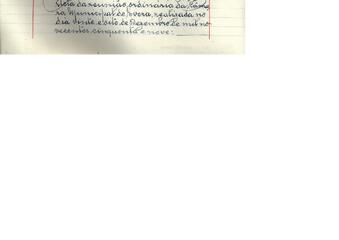 Acta da reunião ordinaria da Câma-
ra Municipal de Evora, realizada no
dia vinte e oito de Dezembro de mil no-
vecentos cinquenta e nove: